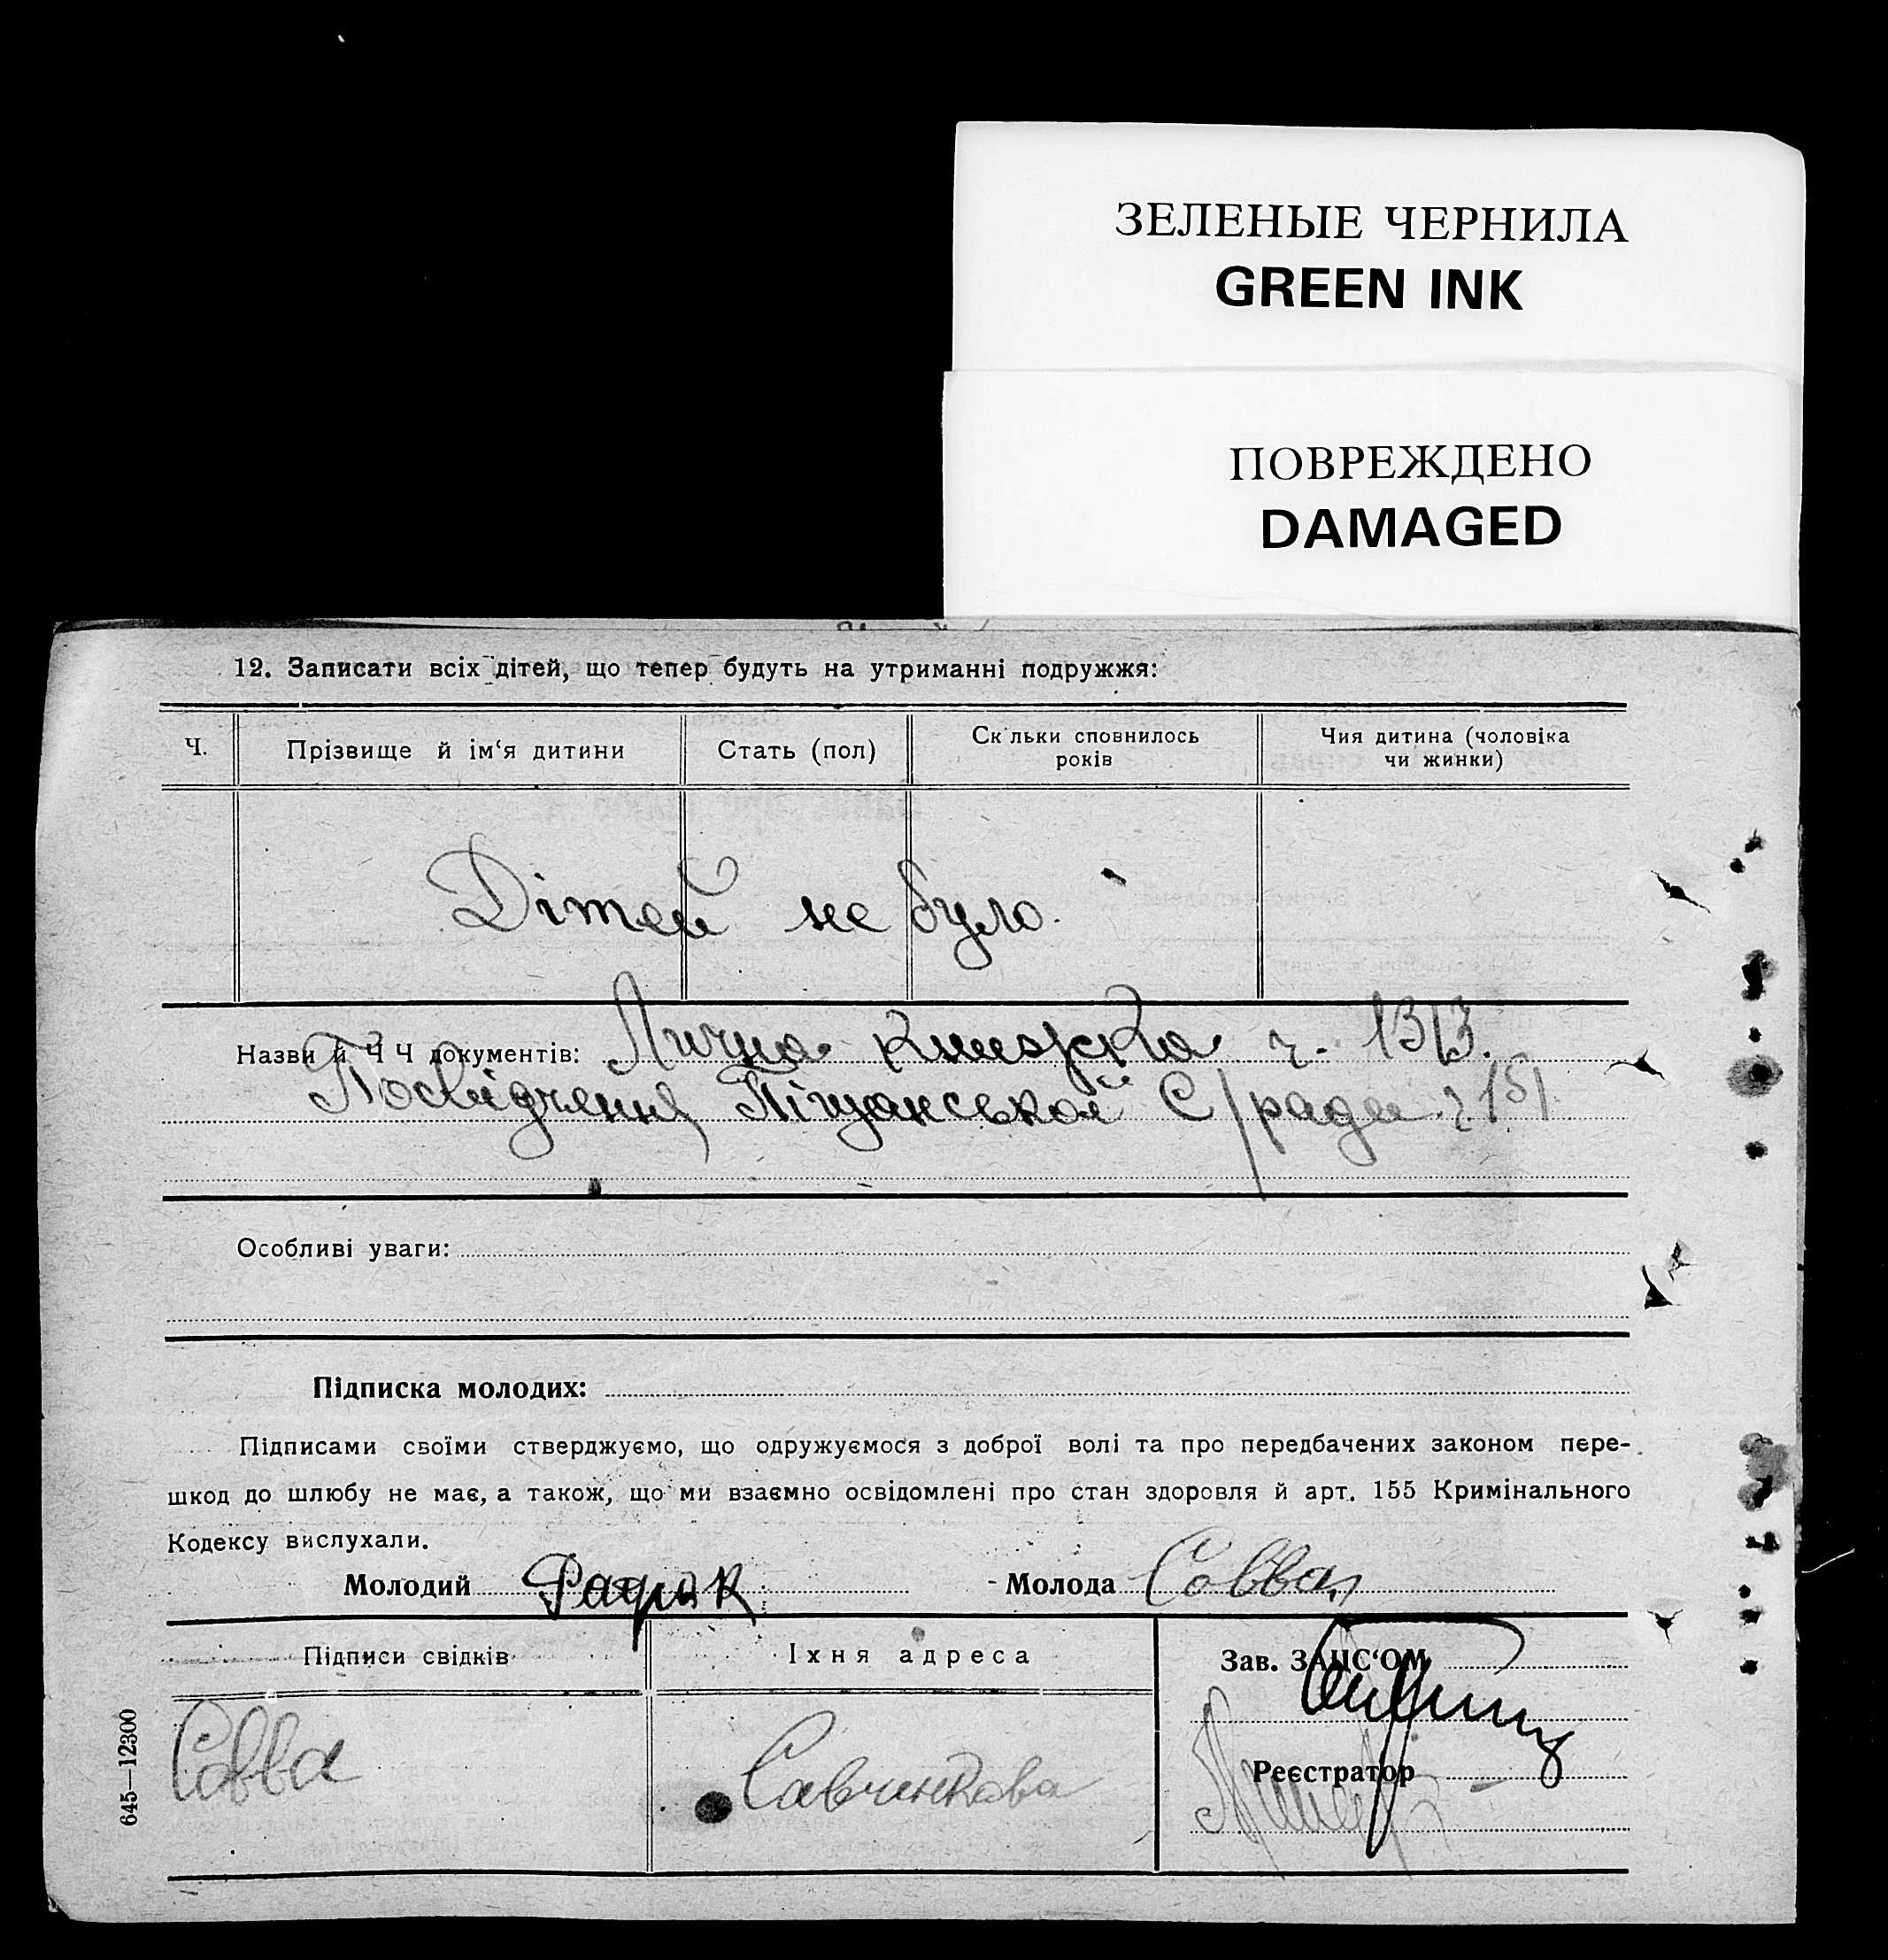 ЗЕЛЕНЫЕ ЧЕРНИЛА
GREEN INK
ПОВРЕЖДЕНО
DAMAGED
12. Записати всіх дітей, що тепер будуть на утриманні подружжя:
Ч.
Прізвище й ім‘я дитини
Стать (пол)
Скільки сповнилось
років
Чия дитина (чоловіка
чи жинки)
Дітей не було.
Назви й Ч Ч документів: Лична книжка ч. 1313.
Посвідчення Піщанської С/ради ч 151
Особливі уваги:
Підписка молодих:
Підписами своїми стверджуємо, що одружуємося з доброї волі та про передбачених законом пере-
шкод до шлюбу не має, а також, що ми взаємно освідомлені про стан здоровля й арт. 155 Кримінального
Кодексу вислухали.
Молодий
Молода Савва
Підписи свідків
Їхня адреса
Зав. ЗАПС‘ОМ
Савва
Савченкова
Реєстратор
645—12300